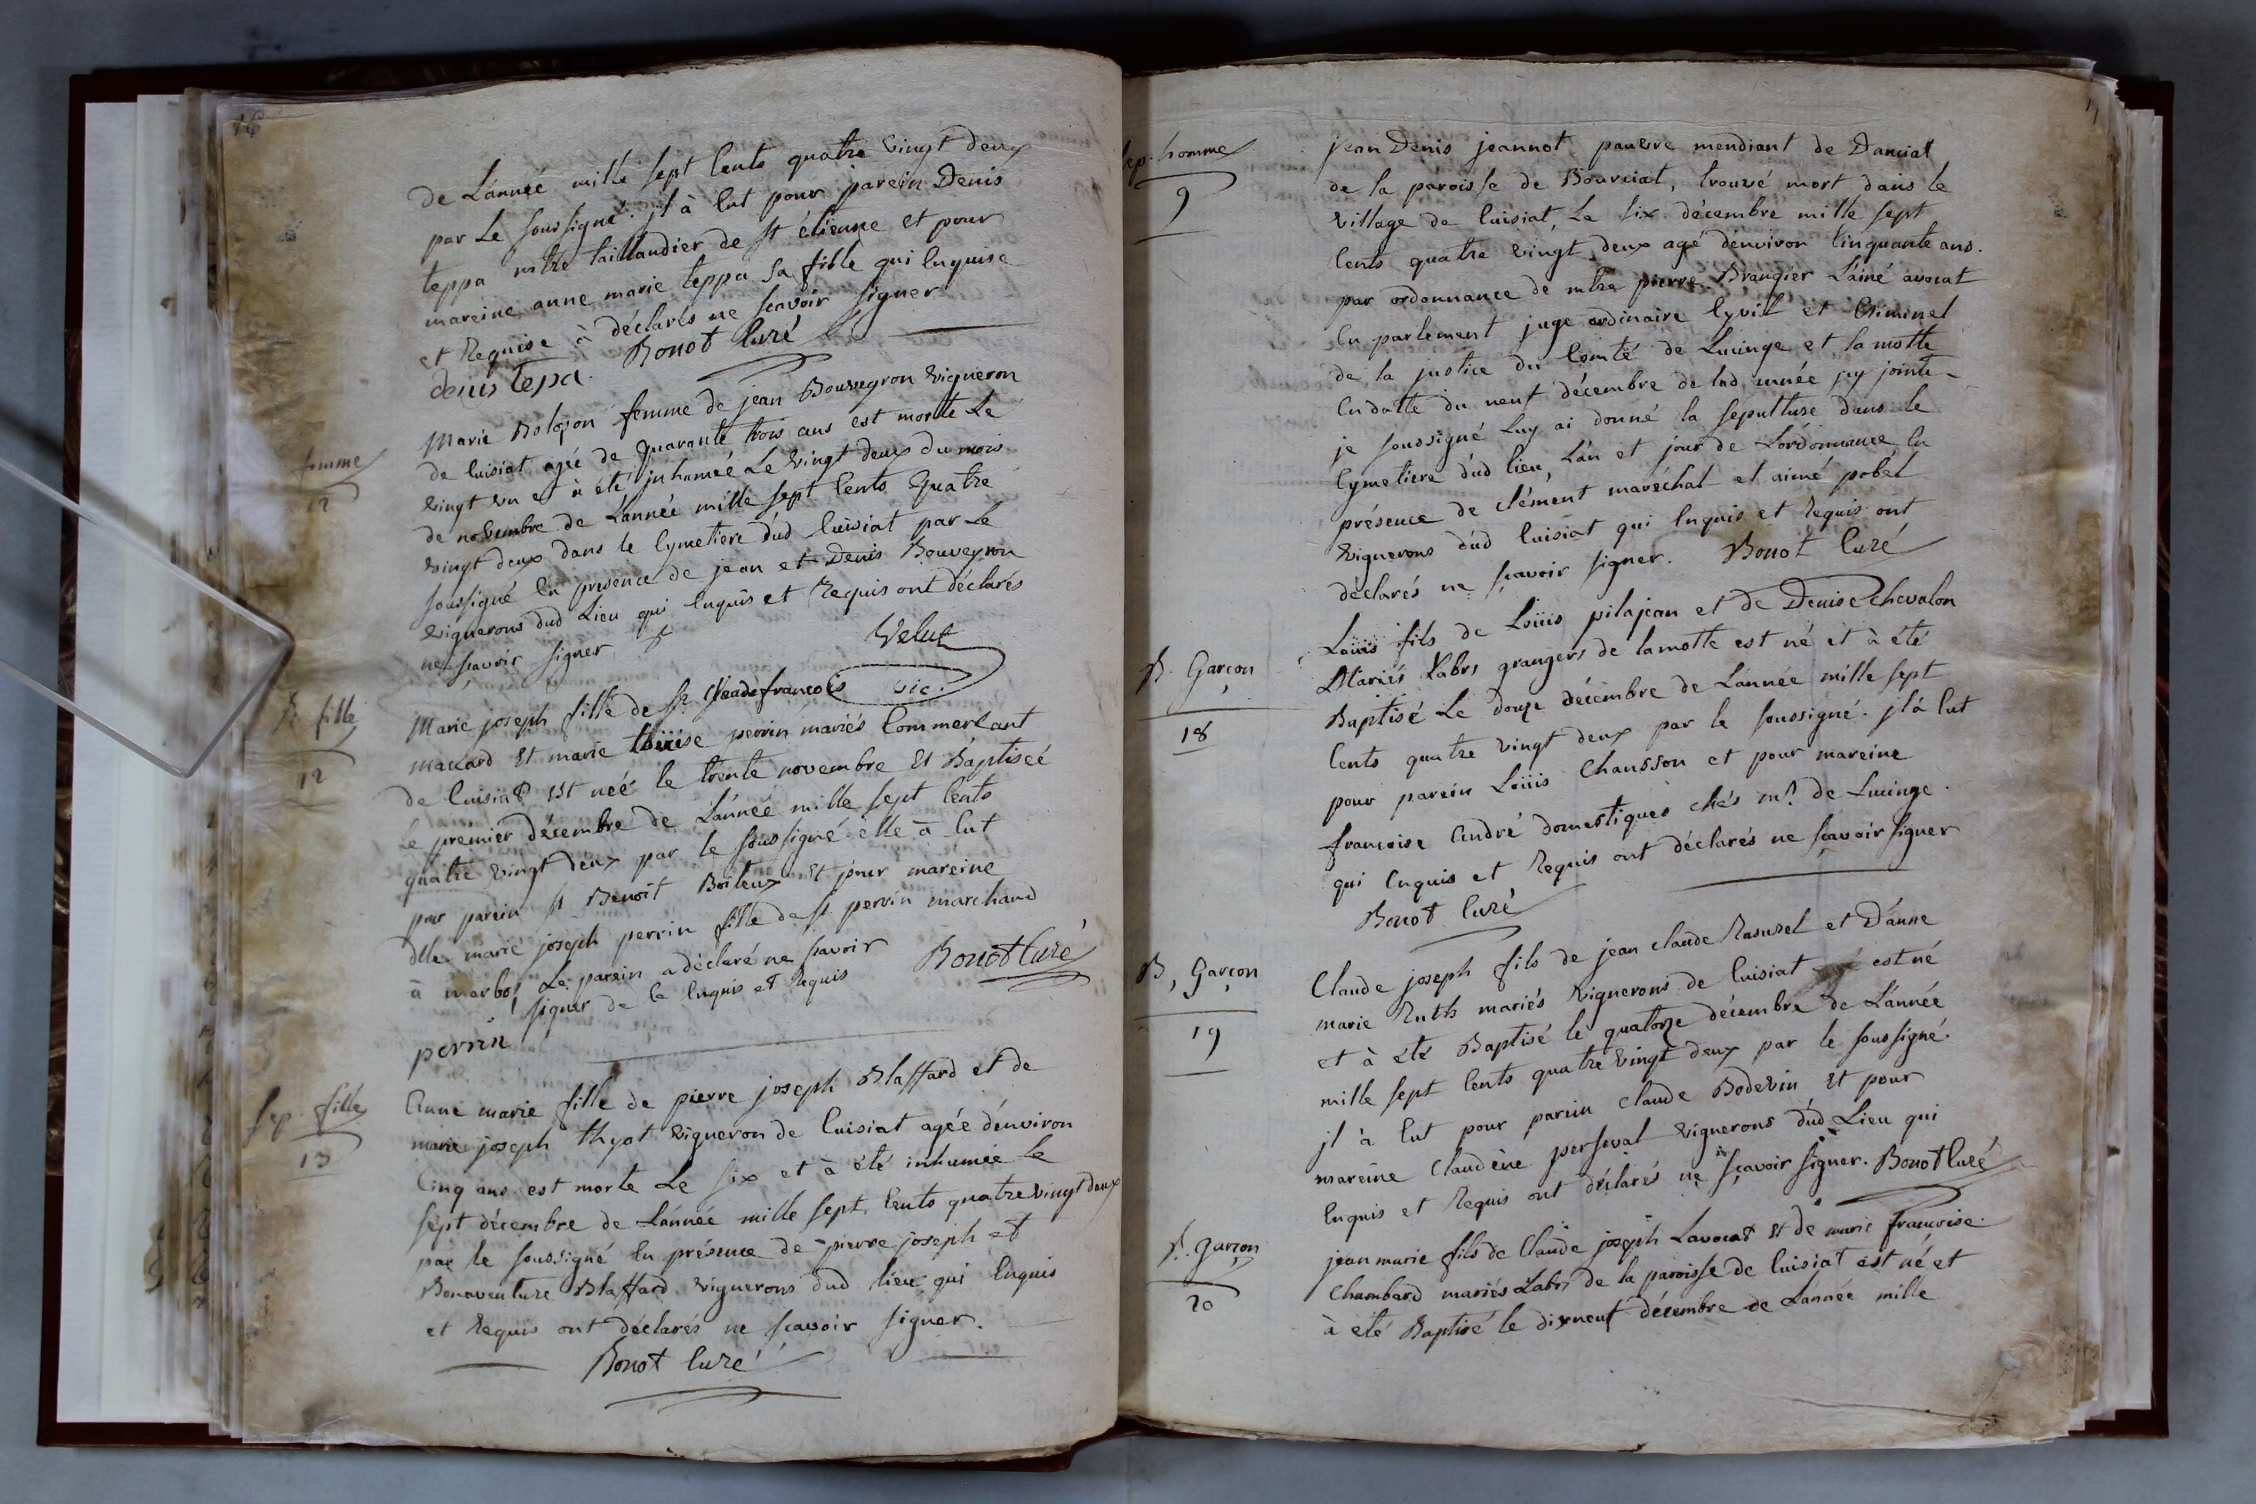 16
de L'année mille sept Cents quatre vingt deux
par Le soussigné. jl à Eut pour parein Denis
teppa mtre taillandier de st étienne et pour
mareine anne marie teppa sa fille qui Enquise
et Requise à déclarés ne scavoir signer
denis tepa. Bonot Curé
femme
12
Marie Bolopon femme de jean Bouveyron vigneron
de Cuisiat agée de quarante trois ans est morte Le
vingt un et à été jnhumée Le vingt deux du mois
de novembre de L'année mille sept Cents quatre
vingt deux dans le Cymetiere dud Cuisiat par Le
soussigné En presence de jean et Denis Bouveyron
vignerons dud Lieu qui Enquis et Requis ont déclarés
ne scavoir signer Velut
vic.
B. fille
12
Marie joseph fille de sr Claude francois
macard Et marie Loüise perrin mariés Commercant
de Cuisiat Est née le trente novembre Et Baptiseé
Le premier décembre de L'année mille sept Cents
quatre vingt deux par le soussigné elle à Eut
pour parein sr Benoit Boiteux Et pour mareine
dlle marie joseph perrin fille de sr perrin marchand
à marboz Le parein a déclaré ne savoir
signer de ce Enquis et Requis Bonot Curé
perrin
sep. fille
13
Anne marie fille de pierre joseph Blaffard et de
marie joseph thyot vigneron de Cuisiat agée d'environ
Cinq ans est morte Le six et à été inhumée le
sept décembre de L'année mille sept Cents quatre vingt deux
par le soussigné En présence de pierre joseph et
Bonaventure Blaffard vignerons dud lieu qui Enquis
et Requis ont déclarés ne scavoir signer.
Bonot Curé
sep. homme
9
jean Denis jeannot pauvre mendiant de Danciat
de la paroisse de Bourciat, trouvé mort dans le
village de Cuisiat, Le six décembre mille sept
Cents quatre vingt deux agé d'environ Cinquante ans.
par ordonnance de mtre pierre Brangier L'ainé avocat
En parlement juge ordinaire Cyvil et Criminel
de la justice du Comté de Lucinge et la motte
En datte du neuf décembre de lad année cy jointe
je soussigné Luy ai donné la sepulture dans le
Cymetiere dud lieu, L'an et jour de L'ordonnance En
présence de clément maréchal et aimé pobel
vignerons dud Cuisiat qui Enquis et Requis ont
déclarés ne scavoir signer. Bonot Curé
B. Garcon
18
Loüis fils de Loüis pilajean et de Denise Chevalon
Mariés Labrs grangers de lamotte est né et à été
Baptisé Le douze décembre de L'année mille sept
Cents quatre vingt deux par le soussigné. jl à Eut
pour parein Loüis Chansson et pour mareine
francoise André domestiques chés mr de Lucinge.
qui Enquis et Requis ont déclarés ne scavoir signer
Bonot Curé
B, Garcon
19
Claude joseph fils de jean claude Rasurel et D'anne
marie Ruth mariés vignerons de Cuisiat est né
et à été Baptisé le quatorze décembre de L'année
mille sept Cents quatre vingt deux par le soussigné.
jl à Eut pour parein claude Bodevin Et pour
mareine Claudeine perseval vignerons dud Lieu qui
Enquis et Requis ont déclarés ne scavoir signer. Bonot Curé
B. garcon
20
jean marie fils de Claude joseph Lavocat Et de marie francoise
Chambard mariés Labrs de la paroisse de Cuisiat est né et
à eté Baptisé le dixneuf décembre de L'année mille